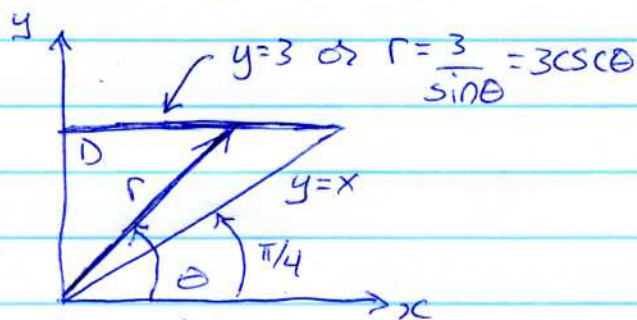 y
y=3 or r=3/sinθ=3cscθ
D
r
y=x
θ
π/4
x